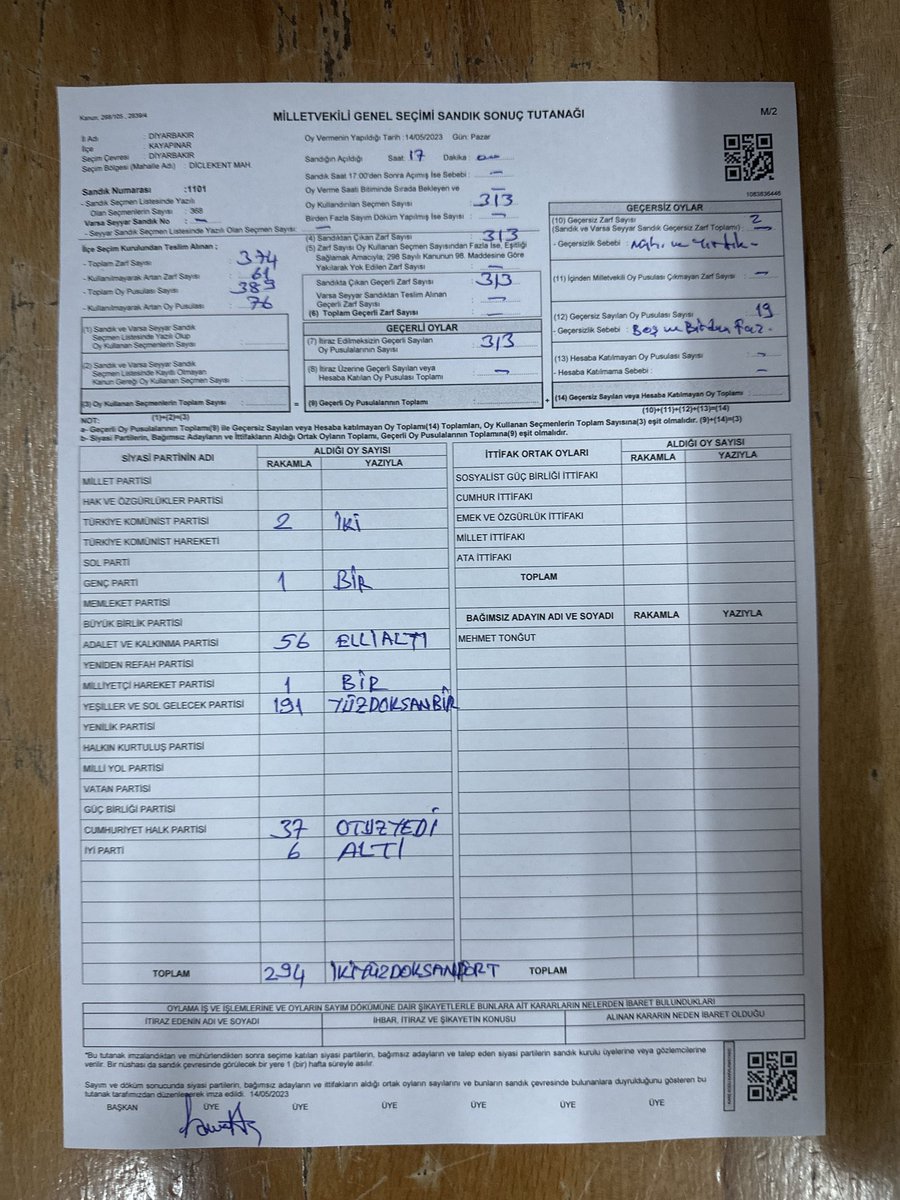 Kanun: 298/105 , 2839/4
MİLLETVEKİLİ GENEL SEÇİMİ SANDIK SONUÇ TUTANAĞI
M/2
İl Adı : DİYARBAKIR
İlçe : KAYAPINAR
Seçim Çevresi : DİYARBAKIR
Seçim Bölgesi (Mahalle Adı) : DİCLEKENT MAH.
Sandık Numarası :1101
- Sandık Seçmen Listesinde Yazılı
Olan Seçmenlerin Sayısı : 368
Varsa Seyyar Sandık No : —
- Seyyar Sandık Seçmen Listesinde Yazılı Olan Seçmen Sayısı: —
Oy Vermenin Yapıldığı Tarih :14/05/2023 Gün: Pazar
Sandığın Açıldığı Saat: 17 Dakika :
Sandık Saat 17:00'den Sonra Açılmış İse Sebebi : —
Oy Verme Saati Bitiminde Sırada Bekleyen ve —
Oy Kullandırılan Seçmen Sayısı : 313
Birden Fazla Sayım Döküm Yapılmış İse Sayısı : —
(4) Sandıktan Çıkan Zarf Sayısı : 313
(5) Zarf Sayısı Oy Kullanan Seçmen Sayısından Fazla İse, Eşitliği
Sağlamak Amacıyla, 298 Sayılı Kanunun 98. Maddesine Göre
Yakılarak Yok Edilen Zarf Sayısı : —
1083836446
İlçe Seçim Kurulundan Teslim Alınan ;
- Toplam Zarf Sayısı : 374
- Kullanılmayarak Artan Zarf Sayısı : 61
- Toplam Oy Pusulası Sayısı : 389
- Kullanılmayarak Artan Oy Pusulası : 76
Sandıkta Çıkan Geçerli Zarf Sayısı : 313
Varsa Seyyar Sandıktan Teslim Alınan
Geçerli Zarf Sayısı : —
(6) Toplam Geçerli Zarf Sayısı : —
GEÇERSİZ OYLAR
(10) Geçersiz Zarf Sayısı : 2
(Sandık ve Varsa Seyyar Sandık Geçersiz Zarf Toplamı) : —
- Geçersizlik Sebebi :
(11) İçinden Milletvekili Oy Pusulası Çıkmayan Zarf Sayısı : —
(12) Geçersiz Sayılan Oy Pusulası Sayısı : 19
- Geçersizlik Sebebi :
(13) Hesaba Katılmayan Oy Pusulası Sayısı : -
- Hesaba Katılmama Sebebi : —
(1) Sandık ve Varsa Seyyar Sandık
Seçmen Listesinde Yazılı Olup
Oy Kullanan Seçmenlerin Sayısı :
(2) Sandık ve Varsa Seyyar Sandık
Seçmen Listesinde Kayıtlı Olmayan
Kanun Gereği Oy Kullanan Seçmen Sayısı :
GEÇERLİ OYLAR
(7) İtiraz Edilmeksizin Geçerli Sayılan
Oy Pusulalarının Sayısı : 313
(8) İtiraz Üzerine Geçerli Sayılan veya
Hesaba Katılan Oy Pusulası Toplamı : —
(3) Oy Kullanan Seçmenlerin Toplam Sayısı : = (9) Geçerli Oy Pusulalarının Toplamı : + (14) Geçersiz Sayılan veya Hesaba Katılmayan Oy Toplamı :
NOT: (1)+(2)=(3)
(10)+(11)+(12)+(13)=(14)
a- Geçerli Oy Pusulalarının Toplamı(9) ile Geçersiz Sayılan veya Hesaba katılmayan Oy Toplamı(14) Toplamları, Oy Kullanan Seçmenlerin Toplam Sayısına(3) eşit olmalıdır. (9)+(14)=(3)
b- Siyasi Partilerin, Bağımsız Adayların ve İttifakların Aldığı Ortak Oyların Toplamı, Geçerli Oy Pusulalarının Toplamına(9) eşit olmalıdır.
SİYASİ PARTİNİN ADI
ALDIĞI OY SAYISI
RAKAMLA YAZIYLA
MİLLET PARTİSİ
HAK VE ÖZGÜRLÜKLER PARTİSİ
TÜRKİYE KOMÜNİST PARTİSİ 2 İKİ
TÜRKİYE KOMÜNİST HAREKETİ
SOL PARTİ
GENÇ PARTİ 1 BİR
MEMLEKET PARTİSİ
BÜYÜK BİRLİK PARTİSİ
ADALET VE KALKINMA PARTİSİ 56 ELLİALTI
YENİDEN REFAH PARTİSİ
MİLLİYETÇİ HAREKET PARTİSİ 1 BİR
YEŞİLLER VE SOL GELECEK PARTİSİ 191 YÜZDOKSANBİR
YENİLİK PARTİSİ
HALKIN KURTULUŞ PARTİSİ
MİLLİ YOL PARTİSİ
VATAN PARTİSİ
GÜÇ BİRLİĞİ PARTİSİ
CUMHURİYET HALK PARTİSİ 37 OTUZYEDİ
İYİ PARTİ 6 ALTI
TOPLAM 294 İKİYÜZDOKSANDÖRT
İTTİFAK ORTAK OYLARI
ALDIĞI OY SAYISI
RAKAMLA YAZIYLA
SOSYALİST GÜÇ BİRLİĞİ İTTİFAKI
CUMHUR İTTİFAKI
EMEK VE ÖZGÜRLÜK İTTİFAKI
MİLLET İTTİFAKI
ATA İTTİFAKI
TOPLAM
BAĞIMSIZ ADAYIN ADI VE SOYADI RAKAMLA YAZIYLA
MEHMET TONĞUT
TOPLAM
OYLAMA İŞ VE İŞLEMLERİNE VE OYLARIN SAYIM DÖKÜMÜNE DAİR ŞİKAYETLERLE BUNLARA AİT KARARLARIN NELERDEN İBARET BULUNDUKLARI
İTİRAZ EDENİN ADI VE SOYADI İHBAR, İTİRAZ VE ŞİKAYETİN KONUSU ALINAN KARARIN NEDEN İBARET OLDUĞU
*Bu tutanak imzalandıktan ve mühürlendikten sonra seçime katılan siyasi partilerin, bağımsız adayların ve talep eden siyasi partilerin sandık kurulu üyelerine veya gözlemcilerine
verilir. Bir nüshası da sandık çevresinde görülecek bir yere 1 (bir) hafta süreyle asılır.
Sayım ve döküm sonucunda siyasi partilerin, bağımsız adayların ve ittifakların aldığı ortak oyların sayılarını ve bunların sandık çevresinde bulunanlara duyrulduğunu gösteren bu
tutanak tarafımızdan düzenlenerek imza edildi. 14/05/2023
BAŞKAN ÜYE ÜYE ÜYE ÜYE ÜYE ÜYE